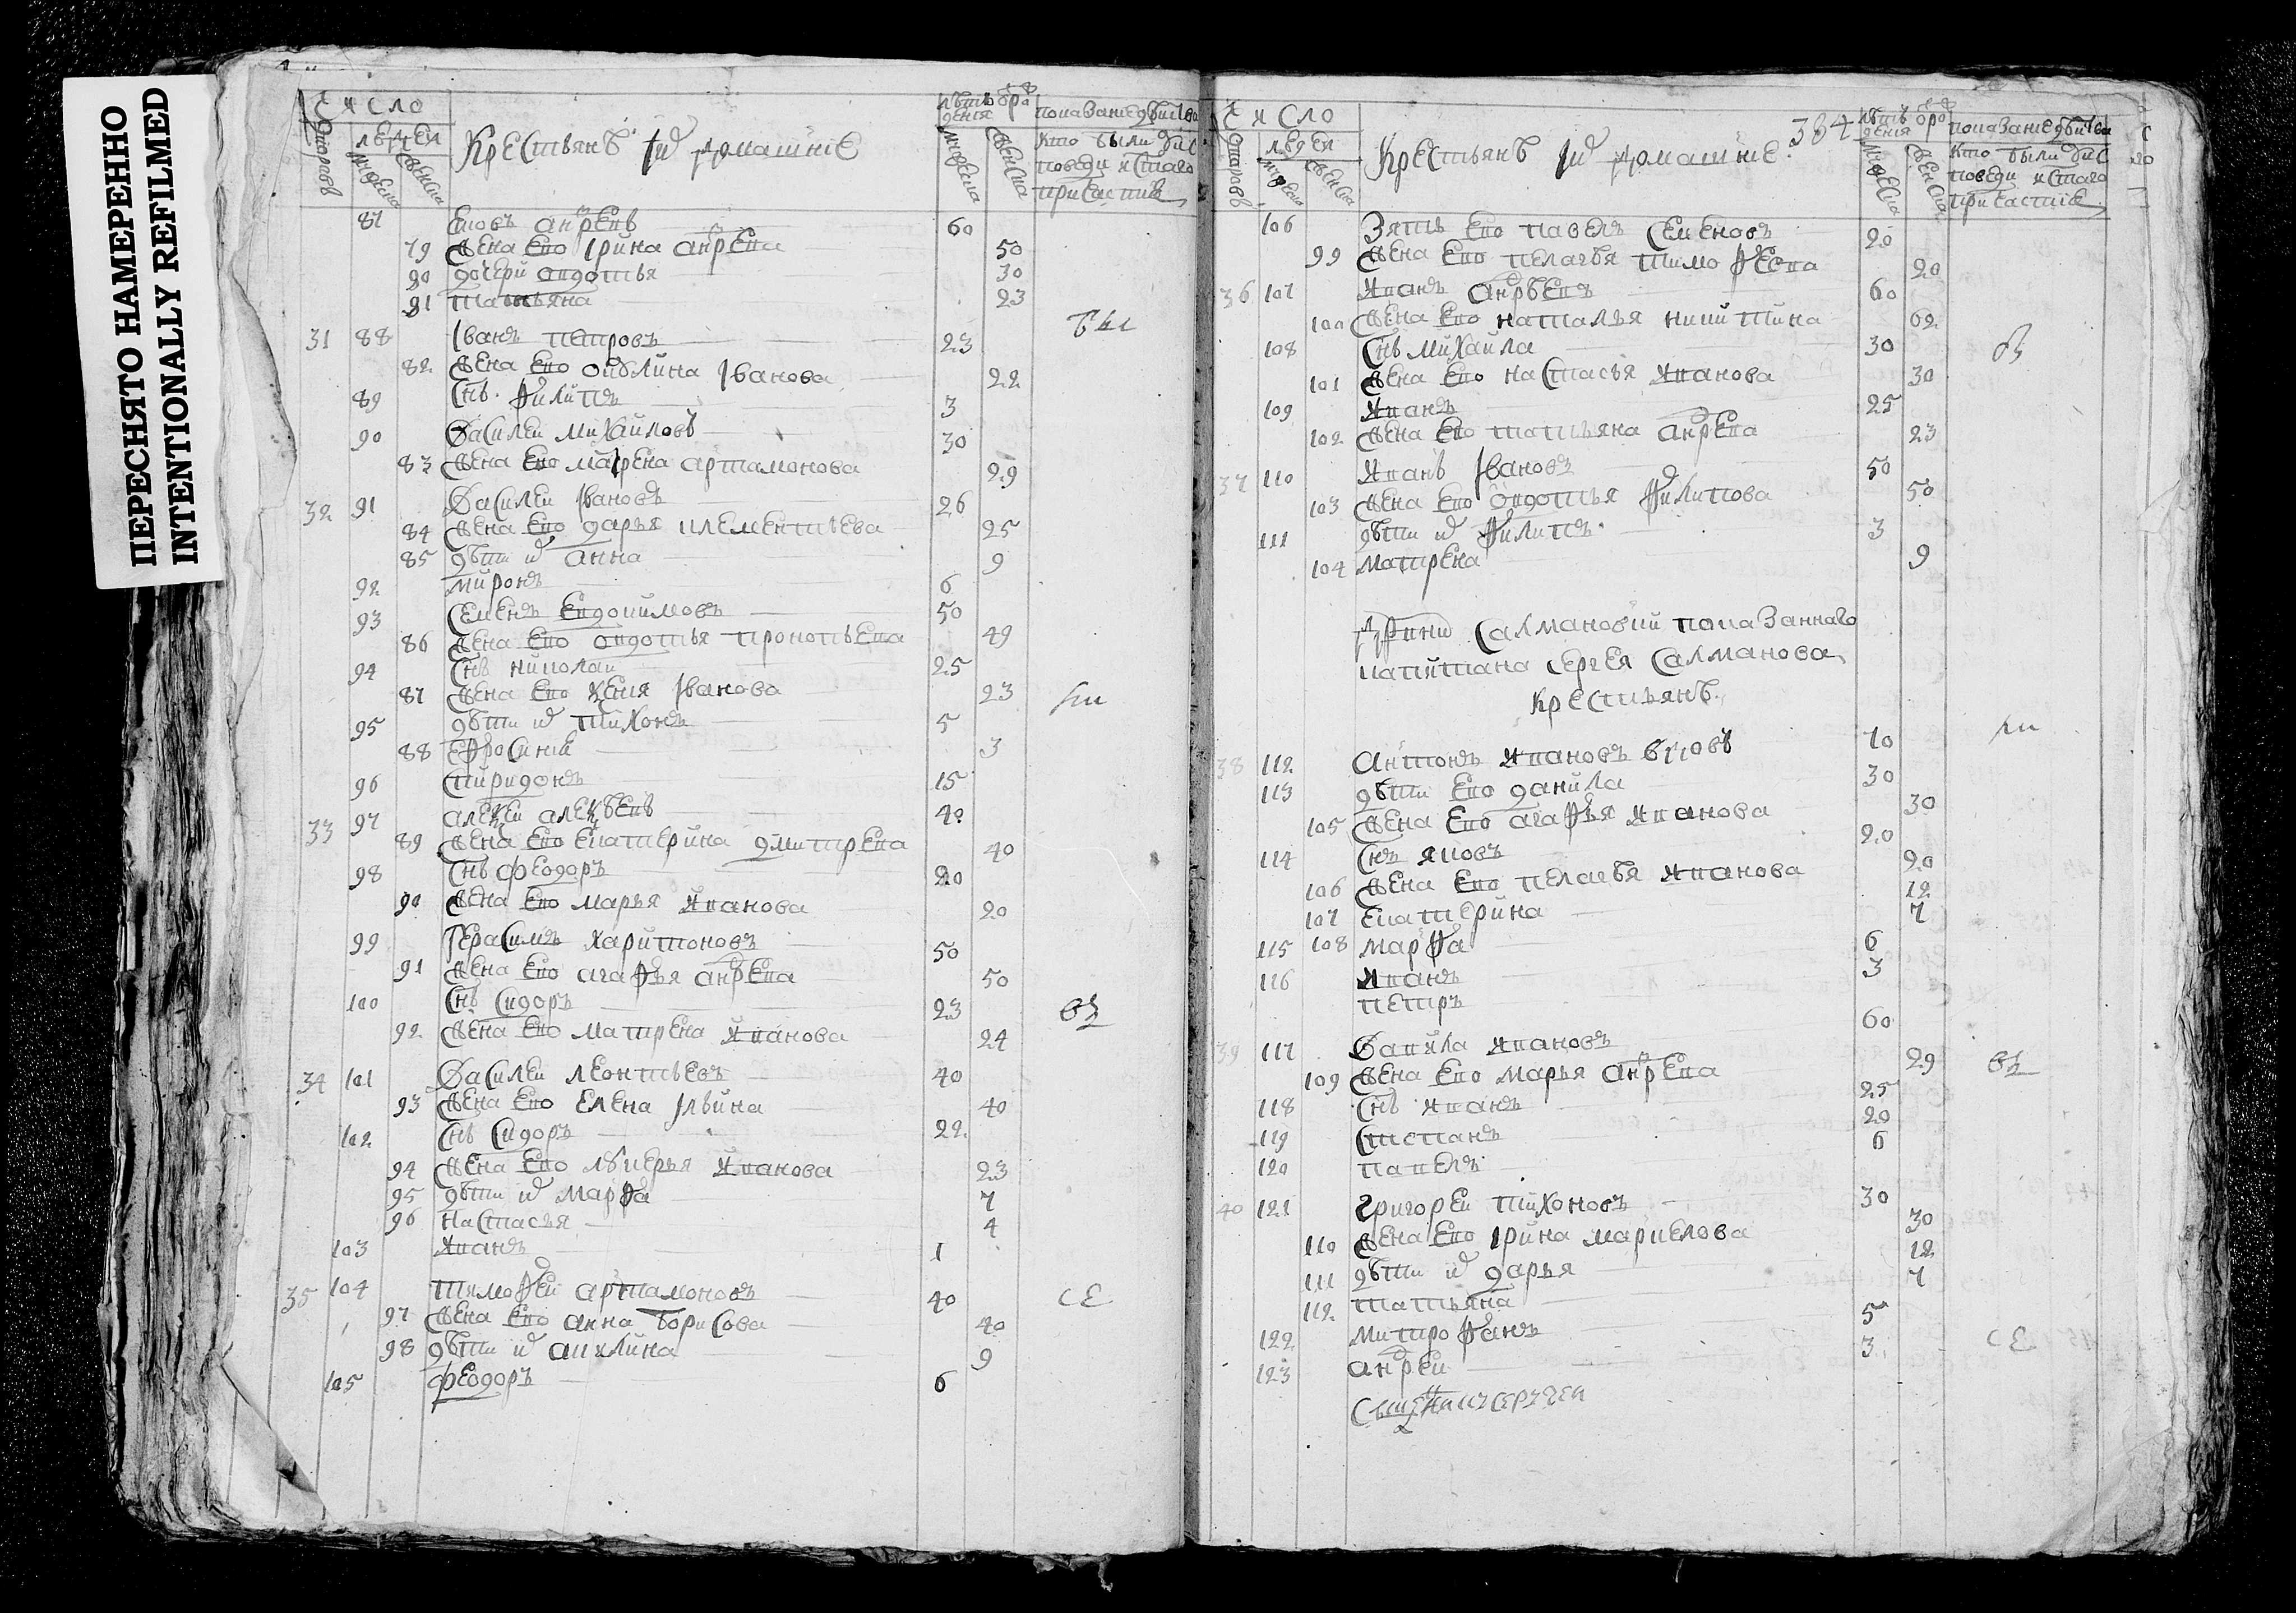 ПЕРЕСНЯТО НАМЕРЕННО
INTENTIONALLY REFILMED
Число
дворовъ
людеи
мужеска
женска
Крестьянѣ и домашние
лѣтъ от рождения
мужеска
женска
показание действа
кто были у ис
поведи и стаго
причастия
87 Яковъ андреевъ 60
79 жена ево Iрина андреева 50
80 дочери овдотья 30
81 татьяна 23
31 88 Iванъ петровъ 23
82 жена ево Iванова 22
89 снъ филипъ 3
90 Василеи михаиловъ 30
83 жена ево матрена артамонова 29
32 91 Василеи Iвановъ 26
84 жена ево дарья клементьева 25
85 дѣти их анна 9
92 миронъ 6
93 Семенъ евдокимовъ 50
86 жена ево овдотья прокотьева 49
94 снъ николаи 25
87 жена ево Iванова 23
95 дѣти их тихонъ 5
88 ефросиния 3
96 спиридонъ 15
33 97 алекеи алекѣевъ 40
89 жена ево екатерина дмитрева 40
98 снъ феодоръ 20
90 жена ево марья иванова 20
99 Герасимъ харитоновъ 50
91 жена ево агафья андреева 50
100 снъ Сидоръ 23
92 жена ево матрена иванова 24
34 101 Василеи леонтьевъ 40
93 жена ево елена Iльина 40
102 снъ Сидоръ 22
94 жена ево лукерья иванова 23
95 дѣти их марфа 7
96 настасья 4
103 иванъ 1
35 104 тимофеи артамоновъ 40
97 жена ево анна борисова 40
98 дѣти их акилина 9
105 феодоръ 6
384
Число
дворовъ
людеи
мужеска
женска
Крестьянѣ и домашние
лѣтъ от рождения
мужеска
женска
показание действа
кто были у ис
поведи и стаго
причастия
106 Зять ево павелъ Семеновъ 20
99 жена ево пелагѣя тимофеева 20
36 107 иванъ андрѣевъ 60
100 жена ево наталья никитина 62
108 снъ михаила 30
101 жена ево настасья иванова 30
109 иванъ 25
102 жена ево татьяна андреева 23
37 110 иванъ Iвановъ 50
103 жена ево овдотья филипова 50
111 дѣти их филипъ 3
104 матрена 9
Дрвни Салмановки показаннаго
капитана сергея Салманова
крестьянѣ
38 112 антонъ ивановъ вдовъ 70
113 дѣти ево данила 30
105 жена ево агафья иванова 30
114 снъ яковъ 20
106 жена ево пелагѣя иванова 20
107 екатерина 12
115 108 марфа 7
116 иванъ 6
петръ 3
39 117 Данила ивановъ 60
109 жена ево марья андреева 29
118 снъ иванъ 25
119 степанъ 20
120 павелъ 6
40 121 григореи тихоновъ 30
110 жена ево Iрина маркелова 30
111 дѣти их дарья 12
112 татьяна 7
122 митрофанъ 5
123 андреи 3